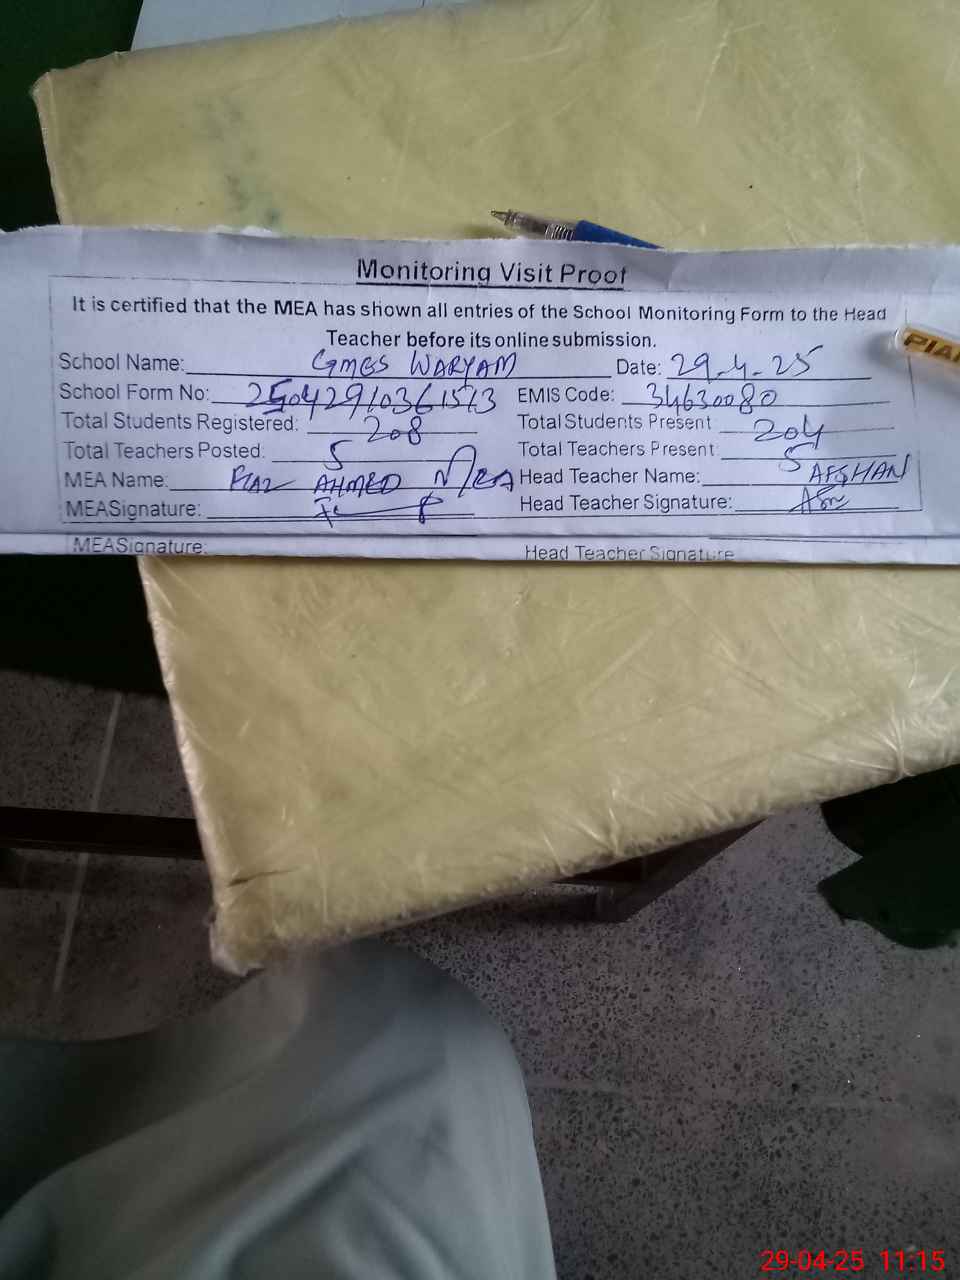 Monitoring Visit Proof
It is certified that the MEA has shown all entries of the School Monitoring Form to the Head
Teacher before its online submission.
School Name: GMES WARYAM Date: 29-4-25
School Form No: EMIS Code: 34630080
Total Students Registered: 208 Total Students Present: 204
Total Teachers Posted: 5 Total Teachers Present: 5
MEA Name: FIAZ AHMED MEA Head Teacher Name: AFSHAN
MEASignature: Head Teacher Signature:
MEASignature: Head Teacher Signature
PIA
29-04-25 11:15